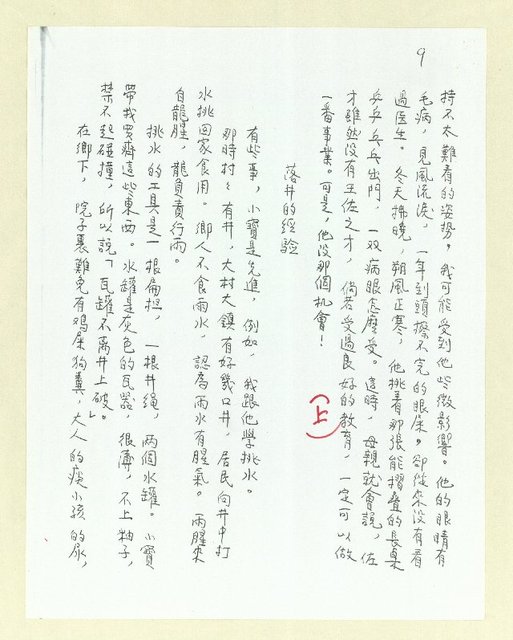 9
持不太難看的姿勢。我可能受到他些微影響。他的眼睛有
毛病，見風流淚，一年到頭擦不完的眼屎。卻從來沒有看
過医生。冬天掃曉，朔風正寒，他挑着那張能摺疊的長桌
乒乒乓乓出門，一双病眼怎麼受。這時，母親就會説，佐
才雖然没有王佐之才，倘若受過良好的教育，一定可以做
一番事業。可是，他没那個机會！
（上）
落井的经驗
有些事，小寶是先進，例如，我跟他學挑水。
那時村村有井，大村大鎮有好幾口井，居民向井中打
水挑回家食用。鄉人不食雨水，認為雨水有腥氣。雨腥來
自龍腥，龍負責行雨。
挑水的工具是一根扁担，一根井绳，兩個水罐。小寶
帶我買齊這些東西。水罐是灰色的瓦器，很薄，不上釉子，
禁不起碰撞，所以說「瓦罐不离井上破」。
在鄉下，院子裏難免有鸡屎狗糞，大人的痰小孩的尿，